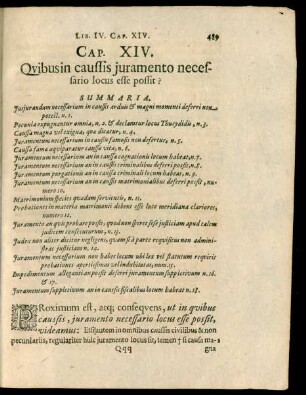 LIB. IV. CAP. XIV. 489
CAP. XIV.
Qvibus in caussis juramento neces-
sario locus esse possit?
SUMMARIA.
Jusjurandum necessarium in caussis arduis & magni momenti deferri non
potest. n. 1.
Pecunia expugnantur omnia, n. 2. & declaratur locus Thucydidis, n. 3.
Caussa magna vel exigua, qua dicatur, n. 4.
Juramentum necessarium in caussis famosis non defertur, n. 5.
Caussa fama aquiparatur caussa vita, n. 6.
Juramentum necessarium an in caussa cognationis locum habeat, n. 7.
Juramentum necessarium an in caussis criminalibus deferri possit, n. 8.
Juramentum purgationis an in caussis criminali locum habeat, n. 9.
Juramentum necessarium an in caussis matrimonialibus deferri possit, nu-
mero 10.
Matrimonium species quadam servientis, n. 11.
Probationes in materia matrimonii debent esse luce meridiana clariores,
numero 12.
Juramento an quis probare possit, quod non speret sese justitiam apud talem
judicem consecuturum, n. 13.
Judex non aliter dicitur negligens, quam si à parte requisitus non admini-
stret justitiam n. 14.
Juramentum necessarium non habet locum ubi lex vel statutum requirit
probationes apertissimas vel indubitatas, num. 15.
Impedimentum allegantis an possit deferri juramentum suppletivum n. 16.
& 17.
Juramentum suppletivum an in caussis fiscalibus locum habeat n. 18.
PRoximum est, atq; conseqvens, ut in qvibus
caussis, juramento necessario locus esse possit,
videamus: Etsi autem in omnibus caussis civilibus & non
pecuniariis, regulariter huic juramento locus sit, tamen si causa ma-
Qqq gna